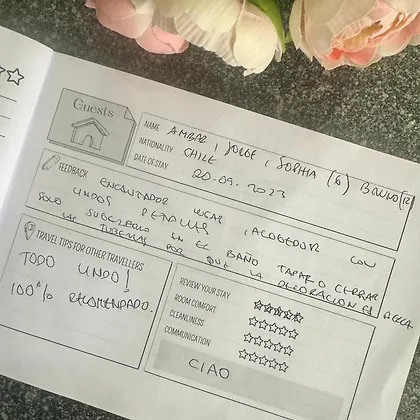 Guests
NAME AMBAR, JORGE, SOPHIA (6) BRUNO (12)
NATIONALITY CHILE
DATE OF STAY 20.09.2023
FEEDBACK ENCANTADOR LUGAR, ACOGEDOR CON
LINDOS DETALLES
SOLO SUGERIERO EN EL BAÑO TAPAR O CERRAR
LAS TUBERIAS POR QUE LA DECORACION ES BELLA
TRAVEL TIPS FOR OTHER TRAVELLERS
TODO LINDO!
100% RECOMENDADO.
REVIEW YOUR STAY
ROOM COMFORT
CLEANLINESS
COMMUNICATION
CIAO